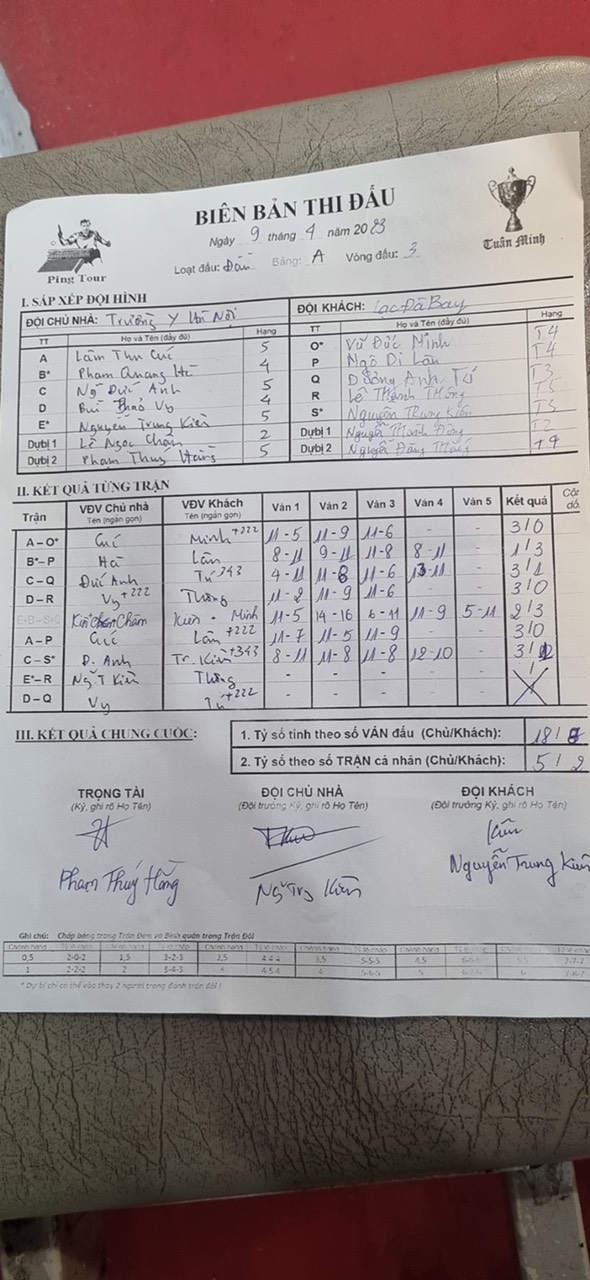 BIÊN BẢN THI ĐẤU
Ngày 9 tháng 4 năm 2023
Ping Tour
Loạt đấu: Bảng: A Vòng đấu: 3
Tuấn Minh
I. SẮP XẾP ĐỘI HÌNH
ĐỘI CHỦ NHÀ: Trường Y Hà Nội
TT Họ và Tên (đầy đủ) Hạng
A Lâm Thu Cúc 5
B* Phạm Quang Hà 4
C Ngô Đức Anh 5
D Bùi Thảo Vy 4
E* Nguyễn Trung Kiên 5
Dự bị 1 Lê Ngọc Chấn 2
Dự bị 2 Phạm Thuý Hằng 5
ĐỘI KHÁCH: Lạc Đà Bay
TT Họ và Tên (đầy đủ) Hạng
O* Vũ Đức Minh T4
P Ngô Di Lân T4
Q Dương Anh Tú T3
R Lê Thành Thông T5
S* Nguyễn Trung Kiên T3
Dự bị 1 Nguyễn Thành T2
Dự bị 2 Nguyễn Đăng
II. KẾT QUẢ TỪNG TRẬN
Trận VĐV Chủ nhà VĐV Khách Ván 1 Ván 2 Ván 3 Ván 4 Ván 5 Kết quả
Tên (ngắn gọn) Tên (ngắn gọn)
A – O* Cúc Minh +222 11-5 11-9 11-6 - - 3/0
B* – P Hà Lân 8-11 9-11 11-8 8-11 - 1/3
C – Q Đức Anh Tú 343 4-11 11-8 11-6 13-11 - 3/1
D – R Vy +222 Thông 11-2 11-9 11-6 - - 3/0
Kiên Kiên - Minh 11-5 14-16 6-11 11-9 5-11 2/3
A – P Cúc Lân +222 11-7 11-5 11-9 3/0
C – S* Đ. Anh Tr. Kiên +343 8-11 11-8 11-8 12-10 3/
E* – R Ng T Kiên Thông - - - - -
D – Q Vy Tú +222 - - - - -
III. KẾT QUẢ CHUNG CUỘC:
1. Tỷ số tính theo số VÁN đấu (Chủ/Khách): 18/8
2. Tỷ số theo số TRẬN cá nhân (Chủ/Khách): 5/2
TRỌNG TÀI ĐỘI CHỦ NHÀ ĐỘI KHÁCH
(Ký, ghi rõ Họ Tên) (Đội trưởng Ký, ghi rõ Họ Tên) (Đội trưởng Ký, ghi rõ Họ Tên)
Kiên
Phạm Thuý Hằng Ng Trg Kiên Nguyễn Trung Kiên
Ghi chú: Chấp bóng trong Trận Đơn và Bình quân trong Trận Đôi
0,5 2-0-2 1,5 3-2-3 2,5 4-4-4 3,5 5-5-5 4,5
1 2-2-2 2 3-4-3 4-5-4
* Dự bị chỉ có thể vào thay 2 người trong đánh trận đôi !